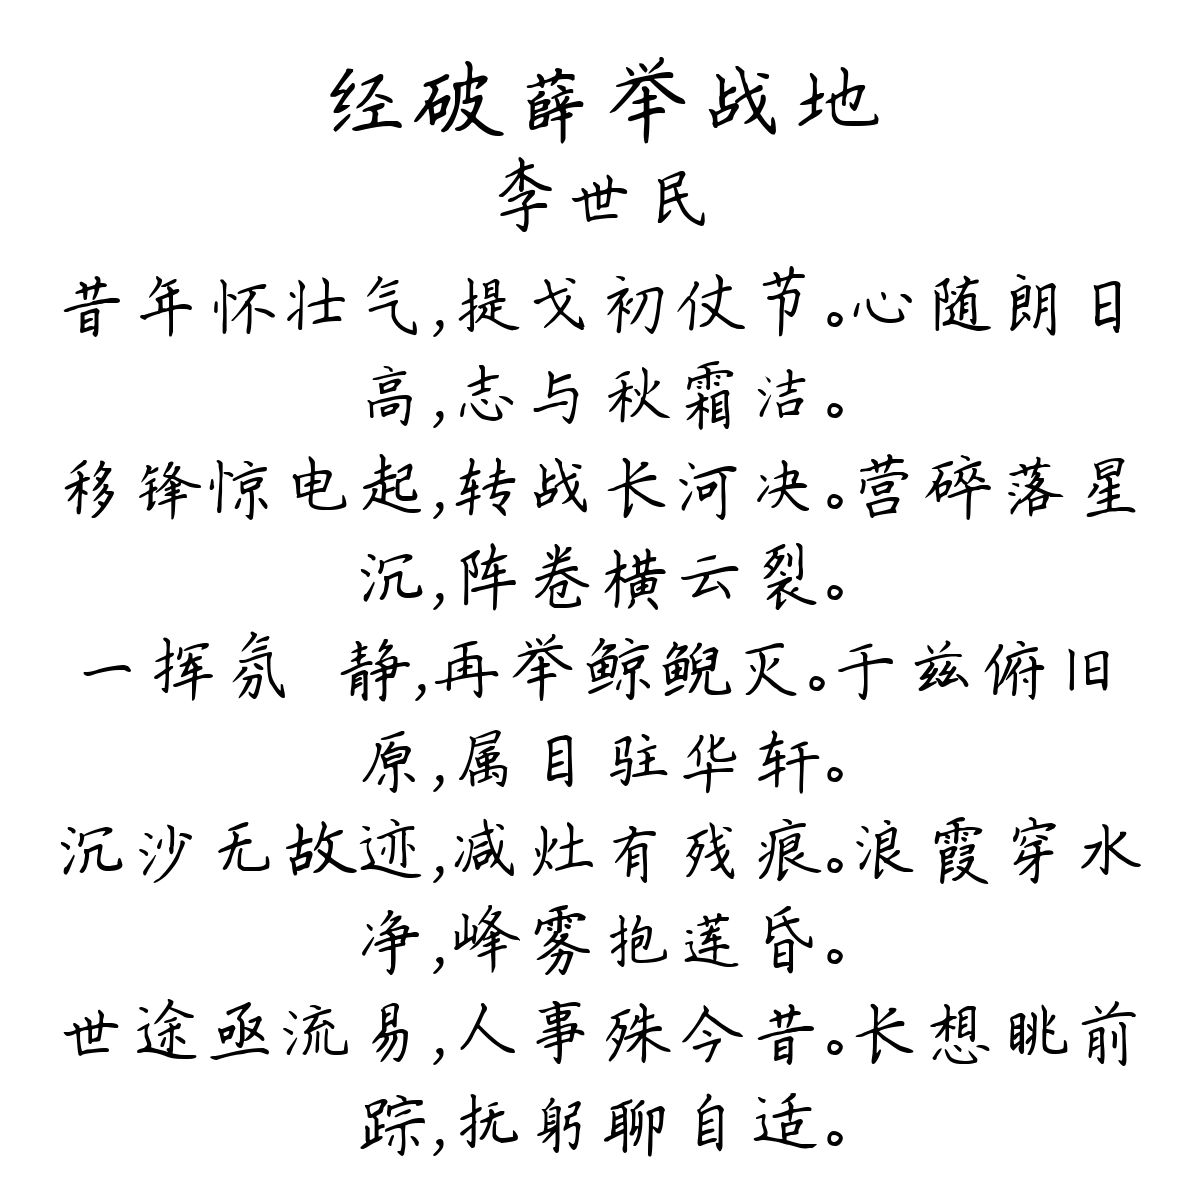 经破薛举战地
李世民
昔年怀壮气,提戈初仗节。心随朗日
高,志与秋霜洁。
移锋惊电起,转战长河决。营碎落星
沉,阵卷横云裂。
一挥氛 静,再举鲸鲵灭。于兹俯旧
原,属目驻华轩。
沉沙无故迹,减灶有残痕。浪霞穿水
净,峰雾抱莲昏。
世途亟流易,人事殊今昔。长想眺前
踪,抚躬聊自适。